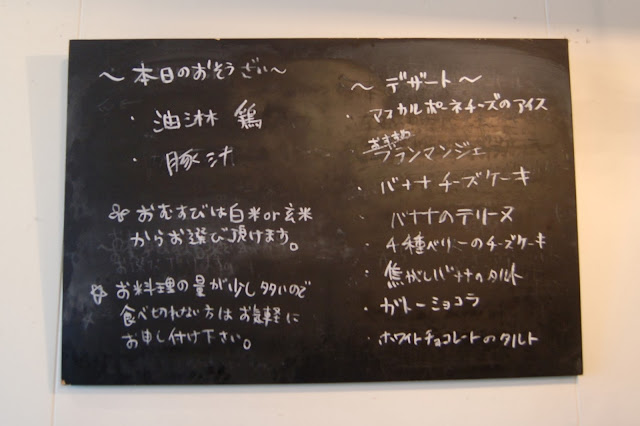 ～本日のおそうざい～
・油淋鶏
・豚汁
おむすびは白米or玄米
からお選び頂けます。
お料理の量が少し多いので
食べきれない方はお気軽に
お申し付け下さい。
～デザート～
・マスカルポーネチーズのアイス
おすすめ
・ブランマンジェ
・バナナチーズケーキ
・バナナのテリーヌ
・4種ベリーのチーズケーキ
・焦がしバナナのタルト
・ガトーショコラ
・ホワイトチョコレートのタルト